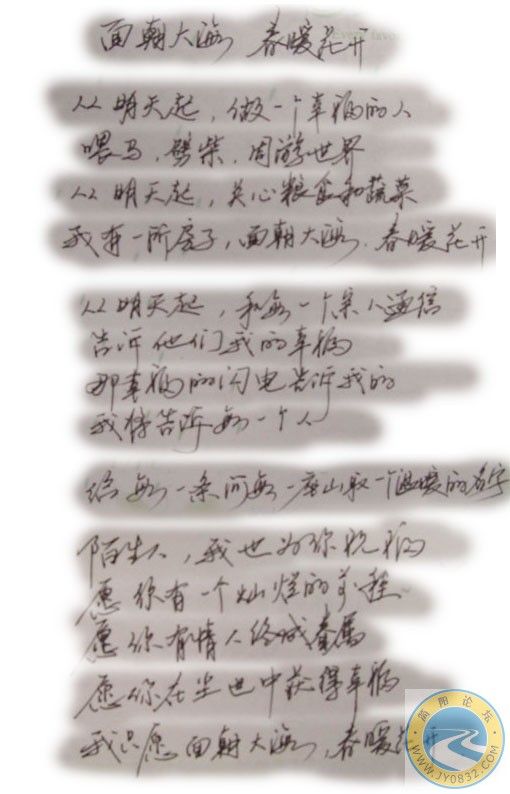 面朝大海 春暖花开
从明天起，做一个幸福的人
喂马，劈柴，周游世界
从明天起，关心粮食和蔬菜
我有一所房子，面朝大海，春暖花开
从明天起，和每一个亲人通信
告诉他们我的幸福
那幸福的闪电告诉我的
我将告诉每一个人
给每一条河每一座山取一个温暖的名字
陌生人，我也为你祝福
愿你有一个灿烂的前程
愿你有情人终成眷属
愿你在尘世中获得幸福
我只愿面朝大海，春暖花开
简阳论坛
WWW.JY0832.COM